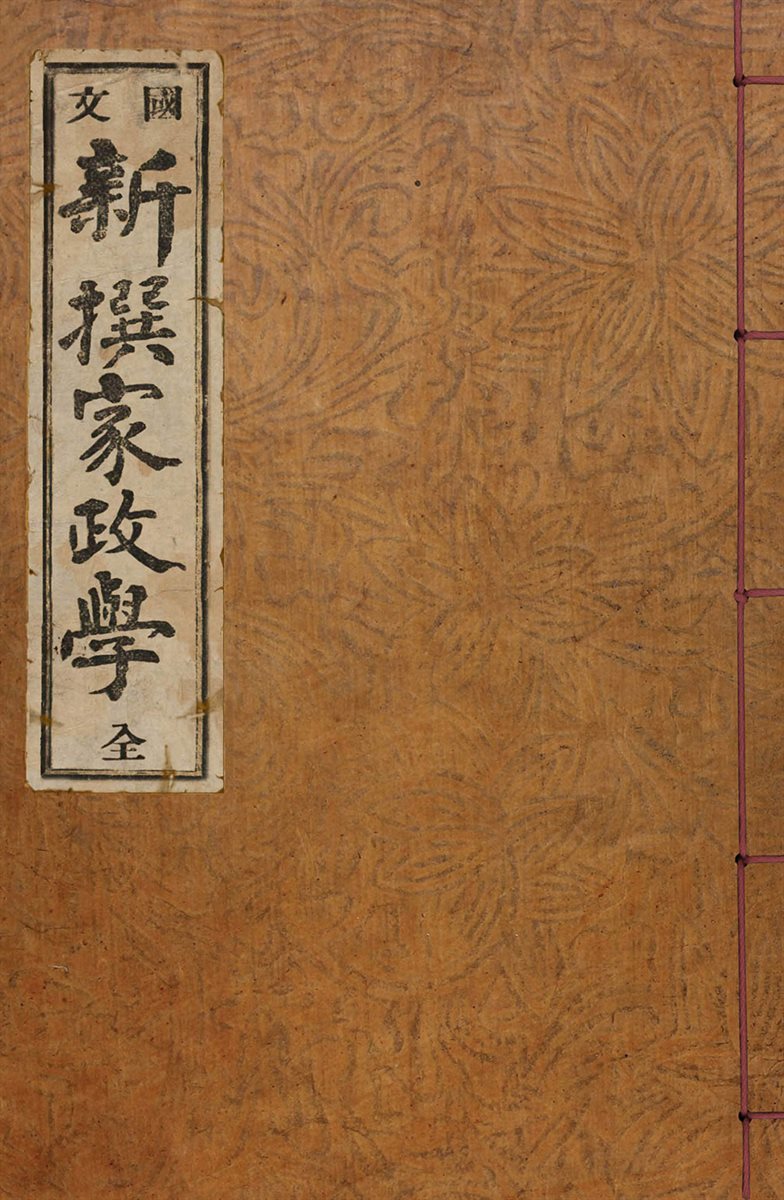 國文
新撰家政學
全